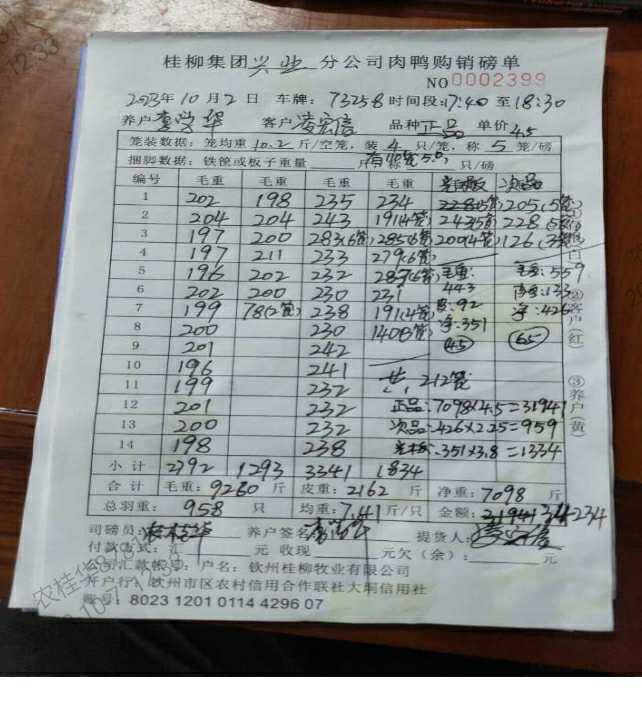 桂柳集团兴业分公司肉鸭购销磅单
NO 0002399
2023年10月2日 车牌:73258 时间段:17:40 至18:30
养户 李学华 客户 凌宏信 品种 正品 单价 4.5
笼装数据:笼均重10.2斤/空笼,装4只/笼,称5笼/磅
捆脚数据:铁筷或板子重量 斤 称 只/磅
编号 毛重 毛重 毛重 毛重 次品
1 202 198 235 234 205(5笼)
2 204 204 243 191(4笼) 243(5笼) 228(5笼)
3 197 200 283(6笼) 285(6笼) 200(4笼) 126(3笼)
4 197 211 233 279(6笼)
5 196 202 232 287(6笼) 毛重: 毛重:559
6 202 200 230 231 443 皮重:133
7 199 78(2笼) 238 191(4笼) 皮:92 净:426
8 200 230 140(3笼) 净:351
9 201 242 45 65
10 196 241
11 199 232 共:212笼
12 201 232 正品:7098×4.5=31941
13 200 232 次品:426×2.25=959
14 198 238 351×3.8=1334
小计 2792 1293 3341 1834
合计 毛重:9260 斤 皮重:2162 斤 净重:7098 斤
总羽重: 958 只 均重:7.41斤/只 金额: 34234
司磅员: 养户签名: 提货人:
付款方式:汇 元 收现 元欠(余): 元
公司汇款帐号:户名:钦州桂柳牧业有限公司
开户行:钦州市区农村信用合作联社大垌信用社
账号:8023 1201 0114 4296 07
②客户(红)
③养户(黄)
12:33
农桂华